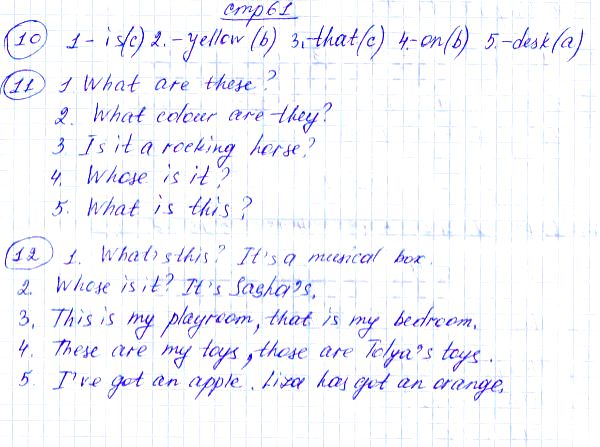 стр 61
10 1 - is(c) 2. - yellow (b) 3. that(c) 4. - on(b) 5. - desk(a)
11 1 What are these?
2. What colour are they?
3 Is it a rocking horse?
4. Whose is it?
5. What is this?
12 1. What's this? It's a musical box.
2. Whose is it? It's Sasha's.
3. This is my playroom, that is my bedroom.
4. These are my toys, those are Tolya's toys.
5. I've got an apple. Liza has got an orange.